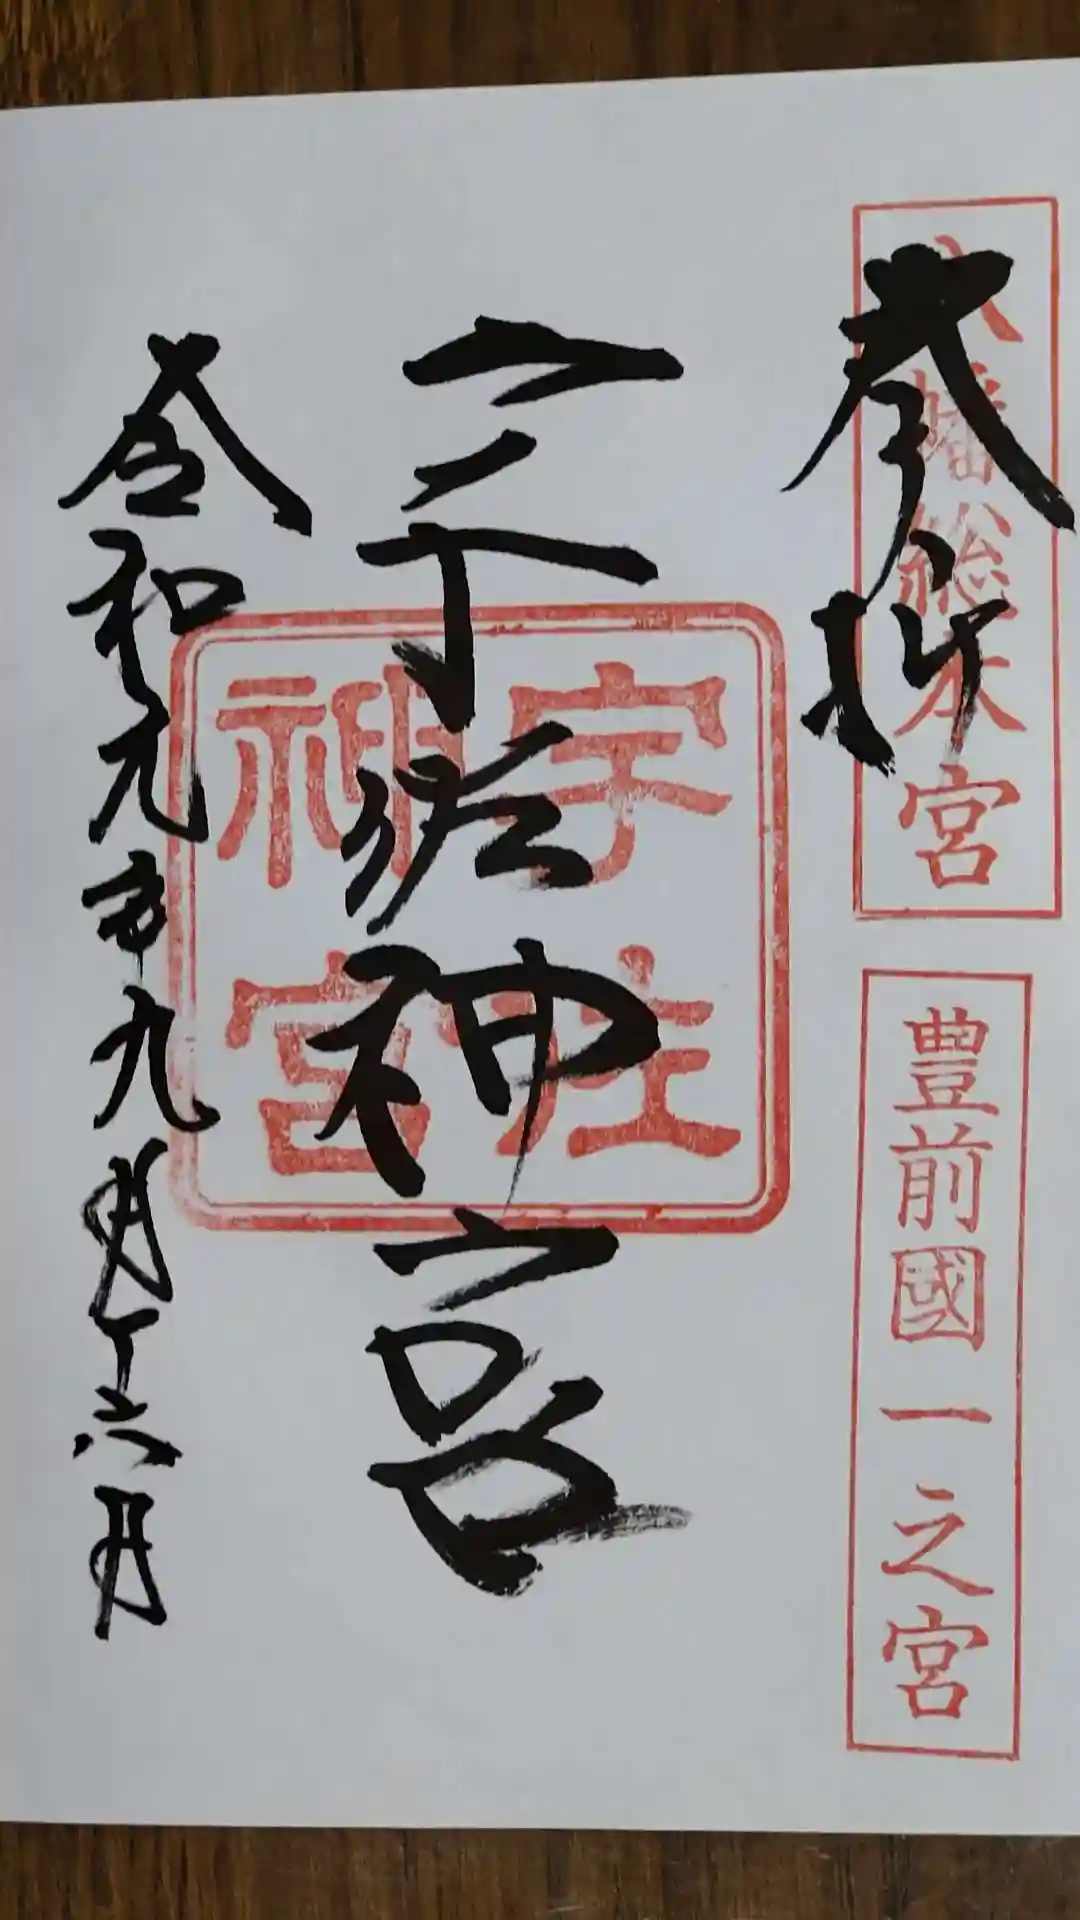 奉拝
八幡総本宮
豊前國一之宮
宇佐神宮
宇佐
神宮
令和元年九月十六日